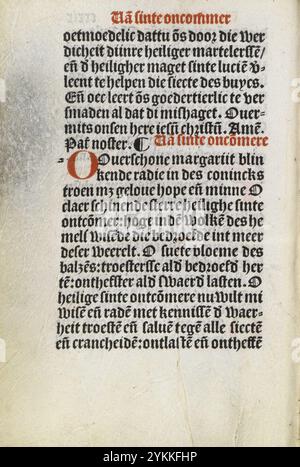 Uā sinte oncommer
oetmoedelic dattu ōs door die wer
dicheit diinre heiliger martelerssē/
eñ đ heiligher maget sinte luciē v̄
leent te helpen die siecte des buycs.
Eñ oec leert ōs goedertierlic te ver
smaden al dat di mishaget. Ouer-
mits onsen here iesū christū. Amē.
Pat noster. ¶ Uā sinte oncōmere
O Ouerschone margariit blin
kende radie in des conincks
troen mʒ geloue hope eñ minne O
claer schinende sterre heilighe sinte
ontcōmer: hoge indē wolkē des he
mels wisēde die bedroefde int meer
deser weerelt. O suete bloeme des
balzēs: troesterssē ald bedroefđ her
tē: ontheffster ald swaerđ lasten. O
heilige sinte ontcōmere nu wilt mi
wisē eñ radē met kennissē đ waer-
heit troestē eñ saluē tegē alle siectē
eñ cranckheidē: ontlastē eñ ontheffē
alamy
Image ID: 2YKKFHP
www.alamy.com